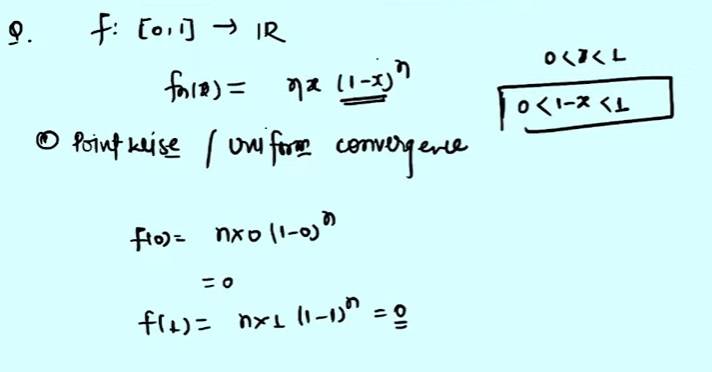 Q. f: [0,1] → IR
fn(x) = nx (1-x)^n
0<x<1
0<1-x<1
① Pointwise / uniform convergence
f(0)= n×0 (1-0)^n
= 0
f(1)= n×1 (1-1)^n = 0